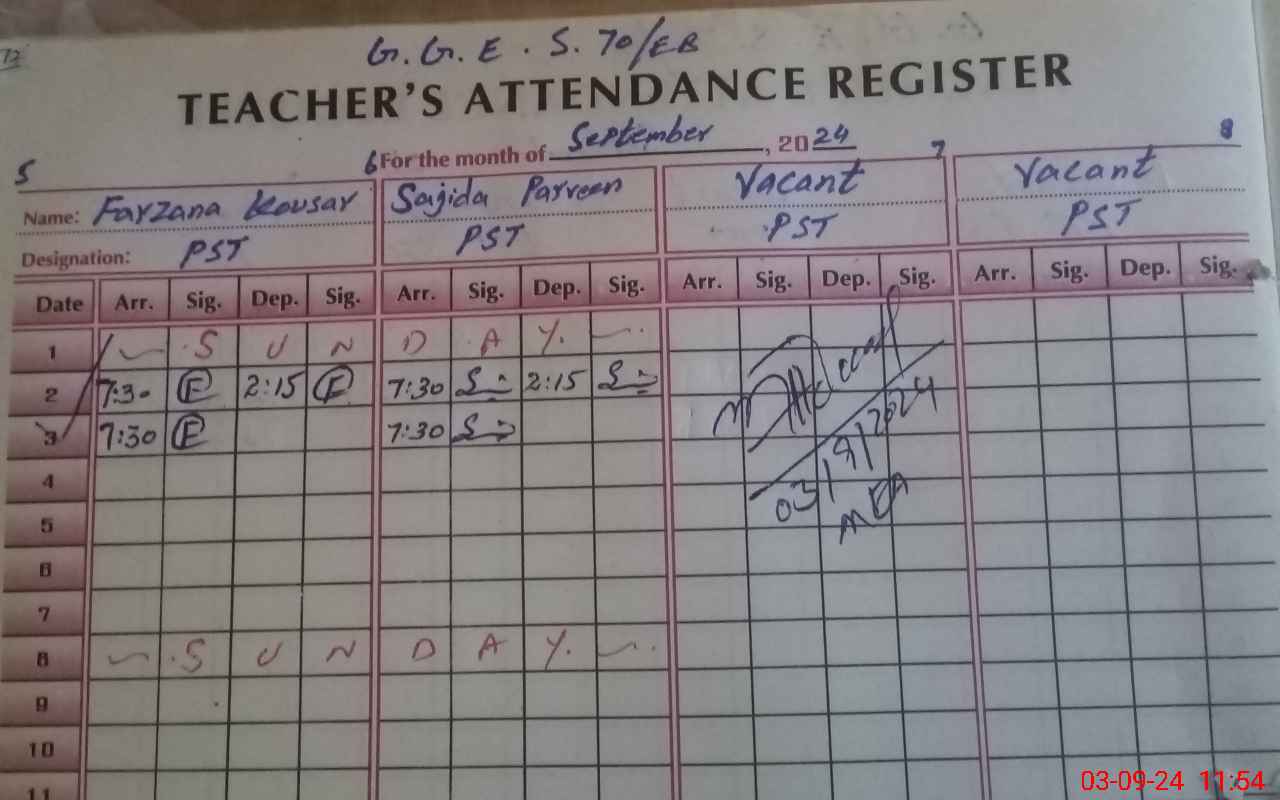 72
G.G.E.S. 70/EB
TEACHER'S ATTENDANCE REGISTER
For the month of September, 2024
5 6 7 8
Name: Farzana Kousar Sajida Parveen Vacant Vacant
Designation: PST PST PST PST
Date Arr. Sig. Dep. Sig. Arr. Sig. Dep. Sig. Arr. Sig. Dep. Sig. Arr. Sig. Dep. Sig.
1 S U N D A Y.
2 7:30 F 2:15 F 7:30 2:15
3 7:30 F 7:30
4
5
03/9/2024
MEA
6
7
8 S U N D A Y.
9
10
11
03-09-24 11:54